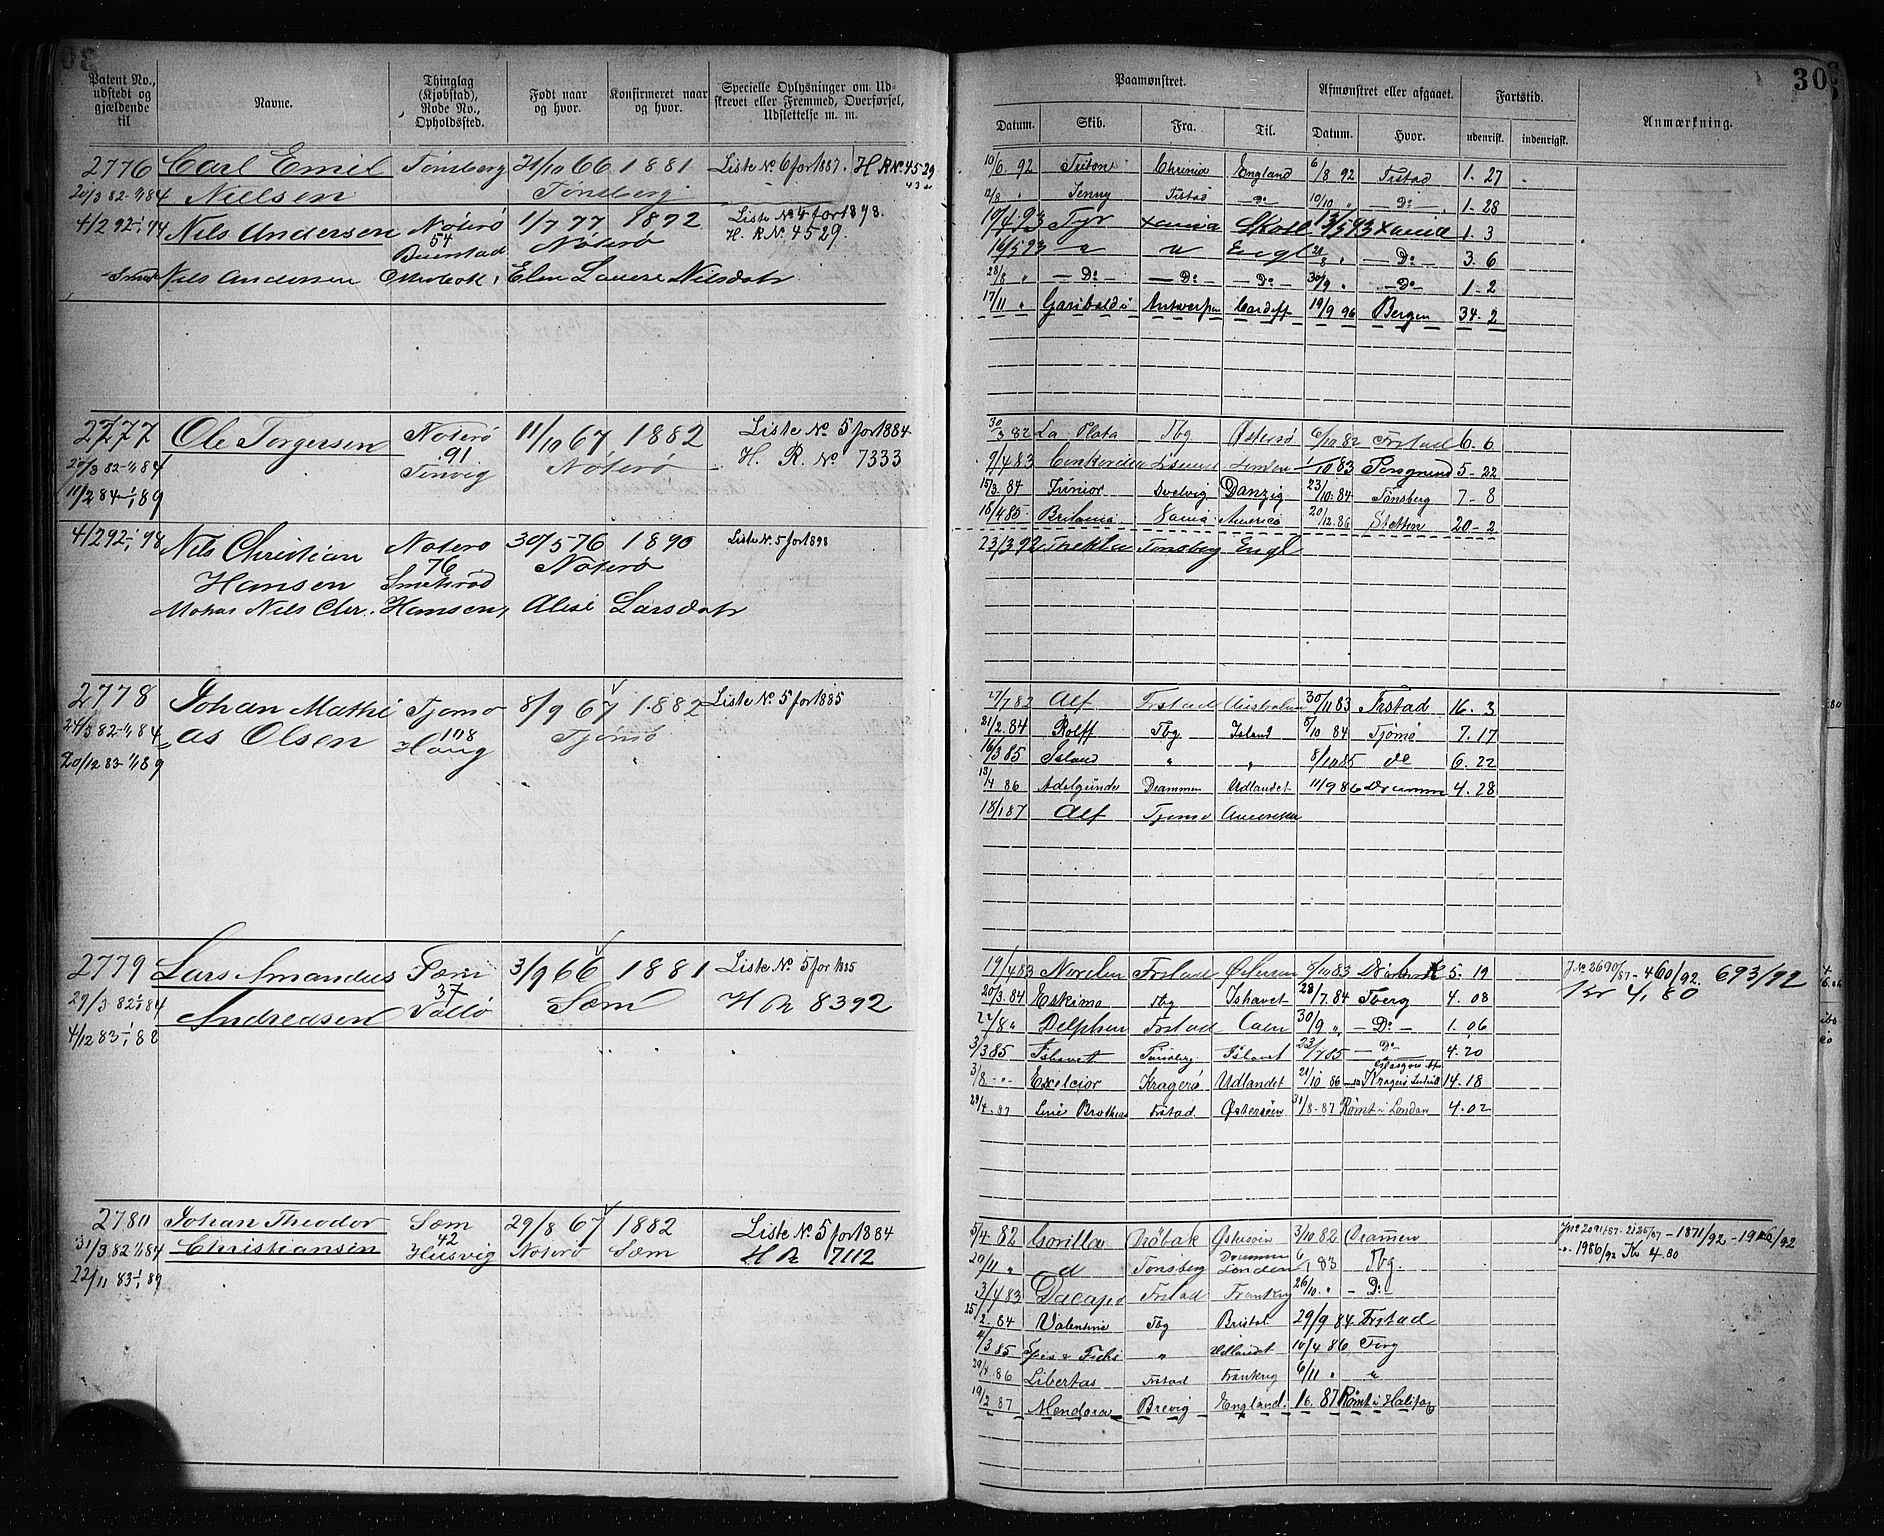 30
Patent No., udstedt og gjældende til
Navne.
Thinglag (Kjøbstad), Rode No., Opholdssted.
Født naar og hvor.
Konfirmeret naar og hvor.
Specielle Oplysninger om Udskrevet eller Fremmed, Overførsel, Udslettelse m. m.
Paamønstret.
Afmønstret eller afgaaet.
Fartstid.
Anmærkning.
Datum. Skib. Fra. Til. Datum. Hvor. udenrigsk. indenrigsk.
2776 Carl Emil Tønsberg 21/10 66 1881 Liste No 6 for 1887. H R No 4529
20/3 82-1/1 84 Nielsen Tønsberg
4/2 92-1/1 94 Nils Andersen Nøterø 1/7 77 1892 Liste No 4 for 1898.
54 Nøterø H. R No. 4529.
Buerstad
Nils Andersen Otterbæk, Elen Lovise Nilsdatr
10/6 92 Triton Chrania England 6/8 92 Frstad 1. 27
12/8 " Jenny Frstad Do 10/10 " Do 1. 28
19/4 93 Tyr Xania Skotl 13/5 93 Xania 1. 3
16/5 93 " " Engl 21/8 " Do 3. 6
28/8 " Do Do Do 30/9 " Do 1. 2
17/11 " Garibaldi Antwerpen Cardiff 19/9 96 Bergen 34. 2
2777 Ole Torgersen Nøterø 11/10 67 1882 Liste No 5 for 1884
20/3 82-1/1 84 91 Nøterø H. R. No 7333
11/2 84-1/1 89 Tenvig
4/2 92-1/1 98 Nils Christian Nøterø 30/5 76 1890 Liste No. 5 for 1898
Hansen 76 Nøterø
Smidsrød
Nils Chr. Hansen, Alise Larsdatr
30/3 82 La Plata Tbg Østersø 6/10 82 Frstad 6. 6
9/4 83 1/10 83 Porsgrund 5-22
15/3 84 Junior Svelvig Danzig 23/10 84 Tønsberg 7-8
16/4 85 Britania Xania America 20/12 86 Stettin 20-2
23/3 92 Thekla Tønsberg Engl
2778 Johan Mathi Tjømø 8/9 67 1882 Liste No 5 for 1885
24/3 82-1/1 84 as Olsen 108 Tjømø
20/12 83-1/1 89 Haug
17/7 82 Alf Frstad Australien 30/11 83 Frstad 16. 3
21/2 84 Rolff Tbg Island 5/10 84 Tjømø 7. 17
16/3 85 Island " " 8/10 85 do 6. 22
13/4 86 Adelgunde Drammen Udlandet 11/9 86 Dramm 4. 28
18/1 87 Alf Tjømø Amerika
2779 Lars Amandus Sæm 3/9 66 1881 Liste No 5 for 1885
29/3 82-1/1 84 Andreasen 37 Sæm H R 8392
4/12 83-1/1 88 Vallø
19/4 83 Norden Frstad Østersøen 9/10 83 5. 19
20/3 84 Eskimo Tbg Ishavet 28/7 84 Tberg 4. 08
22/8 " Delphin Frstad Caen 30/9 " Do 1. 06
3/3 85 Ishavet Tønsberg Ishavet 23/7 85 Do 4. 20
3/8 " Exelcior Kragerø Udlandet 21/10 86 Kragerø 14. 18
29/4 87 Brothers Frstad Østersøen 31/8 87 Rømt i London 4. 02
J No 2690/87 - 460/92. 693/92
Kr 4,80
2780 Johan Theodor Sæm 29/8 67 1882 Liste No 5 for 1884
31/3 82-1/1 84 Christiansen 42 Nøterø Sæm H R 7112
22/11 83-1/1 89 Husvig
5/4 82 Gorilla Drøbak Østersøen 3/10 82 Drammen
29/11 " d Tønsberg Drammen London 6/1 83 Tbg.
3/4 83 Dacapo Frstad Frankrig 26/10 " Do
25/2 84 Valentine Tbg Bristol 29/9 84 Frstad
2/3 85 " Udlandet 10/4 86
29/4 86 Libertas Frstad Frankrig 6/11 " "
19/2 87 Mendora Brevig England. 1/6 87 Rømt i Halifax
1871/92
1986/92 Kr 4.80